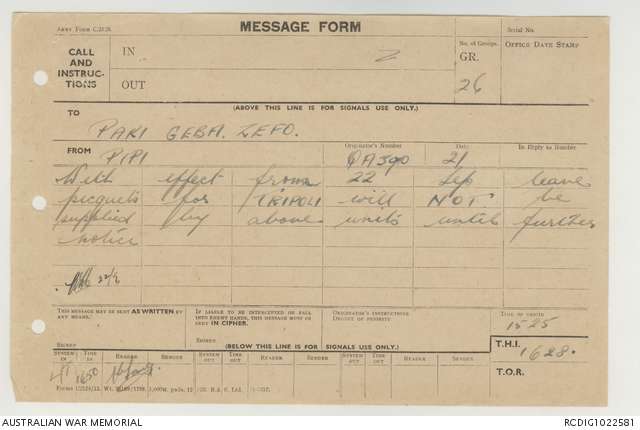 Army Form C.2128
MESSAGE FORM
Serial No.
CALL AND INSTRUCTIONS
IN
Z
No. of Groups.
GR.
26
OFFICE DATE STAMP
OUT
(ABOVE THIS LINE IS FOR SIGNALS USE ONLY.)
TO
PAKI GEBA. ZEFO.
FROM
PIPI
Originator's Number
QA390
Date
21
In Reply to Number
With effect from 22 Sep leave
picquets for TRIPOLI will NOT be
supplied by above units until further
notice
22/9
THIS MESSAGE MAY BE SENT AS WRITTEN BY ANY MEANS.
IF LIABLE TO BE INTERCEPTED OR FALL INTO ENEMY HANDS, THIS MESSAGE MUST BE SENT IN CIPHER.
ORIGINATOR'S INSTRUCTIONS
DEGREE OF PRIORITY
TIME OF ORIGIN
1525
SIGNED
SIGNED
(BELOW THIS LINE IS FOR SIGNALS USE ONLY.)
T.H.I.
1628.
SYSTEM IN
TIME IN
READER
SENDER
SYSTEM OUT
TIME OUT
READER
SENDER
SYSTEM OUT
TIME OUT
READER
SENDER
T.O.R.
1650
AUSTRALIAN WAR MEMORIAL
RCDIG1022581